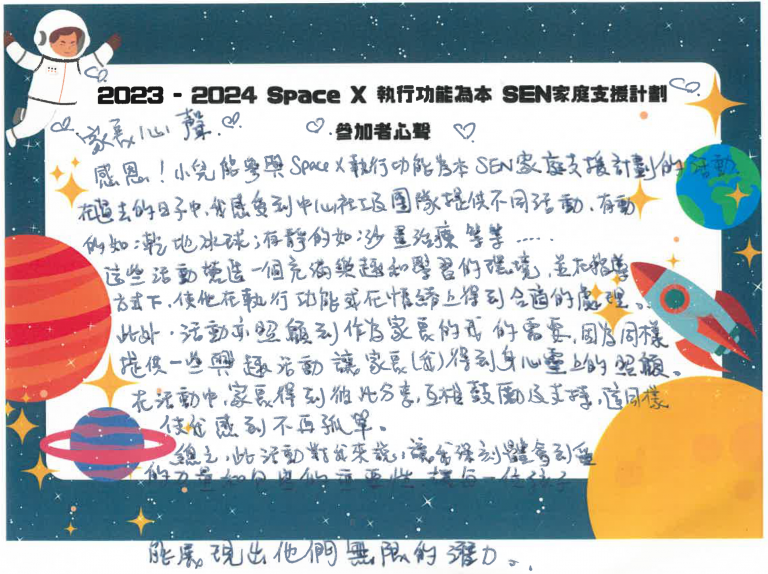 2023 - 2024 Space X 執行功能為本 SEN家庭支援計劃
家長心聲
參加者心聲
感恩！小兒能參與Space X執行功能為本SEN家庭支援計劃的活動
在過去的日子中,我感受到中心社工及團隊提供不同活動,有動
的如:乾地冰球;有靜的如:沙畫治療等等.....
這些活動營造一個充滿樂趣和學習的環境,並在指導
方式下,使他在執行功能或在情緒上得到合適的處理。
此外,活動亦照顧到作為家長的我的需要,因為同樣
提供一些興趣活動讓家長(我)得到身心靈上的照顧。
在活動中,家長得到彼此分享,互相鼓勵及支持,這同樣
使我感到不再孤單。
總之,此活動對我來說,讓我深刻體會到
的力量 每一位孩子
能展現出他們無限的潛力。